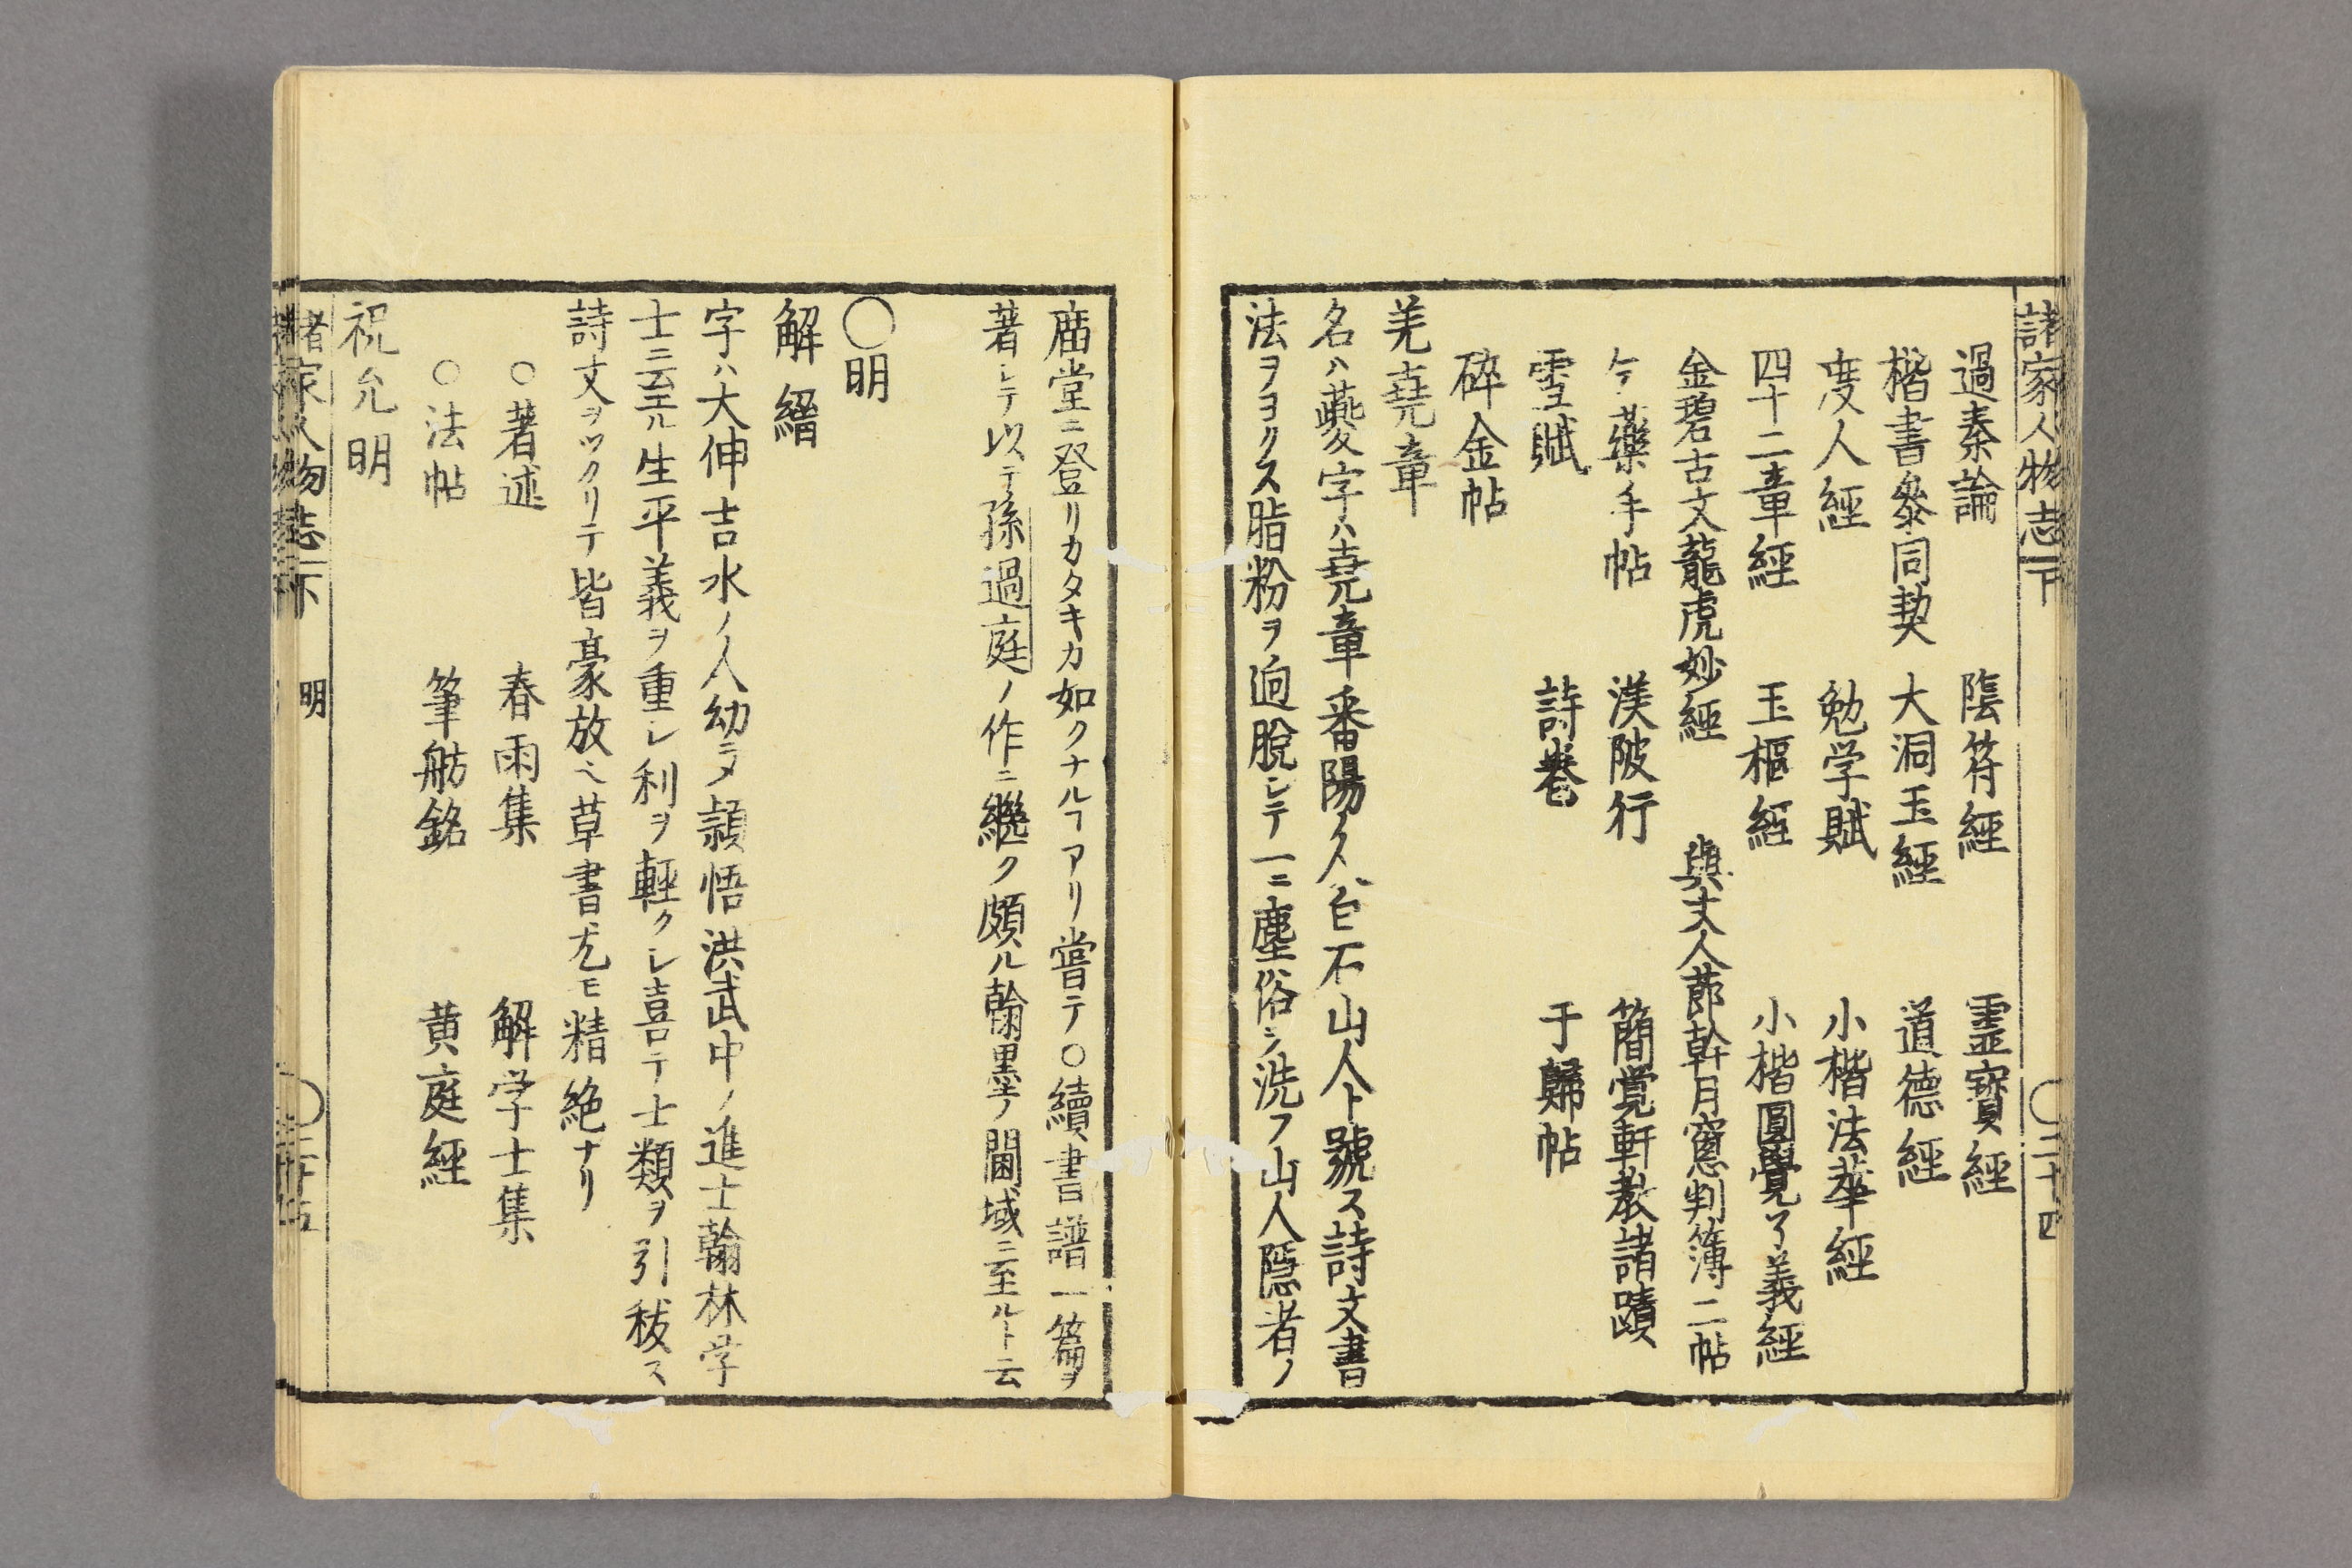 諸家人物志 下 〇三十四
過秦論 陰符經 靈寳經
楷書叅同契 大洞玉經 道德經
度人經 勉学賦 小楷法華經
四十二章經 玉樞經 小楷圓覺了義經
金碧古文龍虎妙經 與丈人莭幹月窻判簿二帖
今藥手帖 渼陂行 簡覚軒教諸蹟
雪賦 詩巻 于歸帖
碎金帖
羌堯章
名ハ夔字ハ堯章番陽ノ人白石山人ト號ス詩文書
法ヲヨクス脂粉ヲ逈脫シテ一ニ塵俗ヲ洗フ山人隠者ノ
庿堂ニ登リカタキカ如クナルヿアリ嘗テ〇續書譜一篇ヲ
著シテ以テ孫過庭ノ作ニ繼ク頗ル翰墨ノ閫域ニ至ルト云
〇明
解縉
字ハ大伸吉水ノ人幼ニメ頴悟洪武中ノ進士翰林学
士ニ至ル生平義ヲ重シ利ヲ輕クシ喜テ士類ヲ引秡ス
詩文ヲツクリテ皆豪放ニ草書尤モ精絶ナリ
〇著述 春雨集 解学士集
〇法帖 筆舫銘 黄庭經
祝允明
諸家人物志 下 明